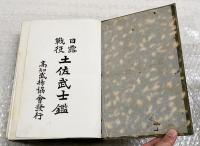 日露
戦役
土佐武士鑑
高知武揚協會發行